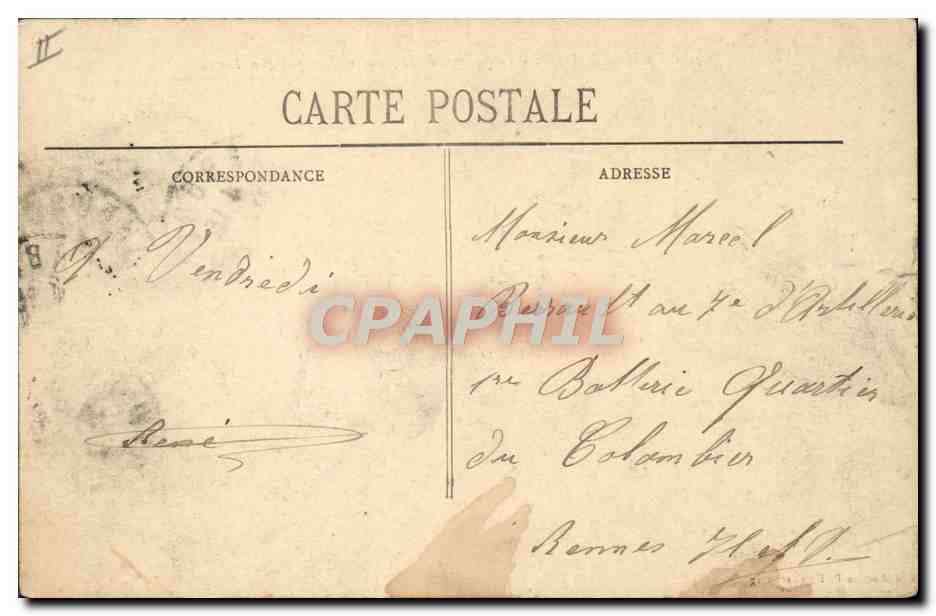 II
CARTE POSTALE
CORRESPONDANCE
ADRESSE
Vendredi
René
Monsieur Marcel
au 7e d'Artillerie
1re Batterie Quartier
du Colombier
Rennes I et V.
CPAPHIL